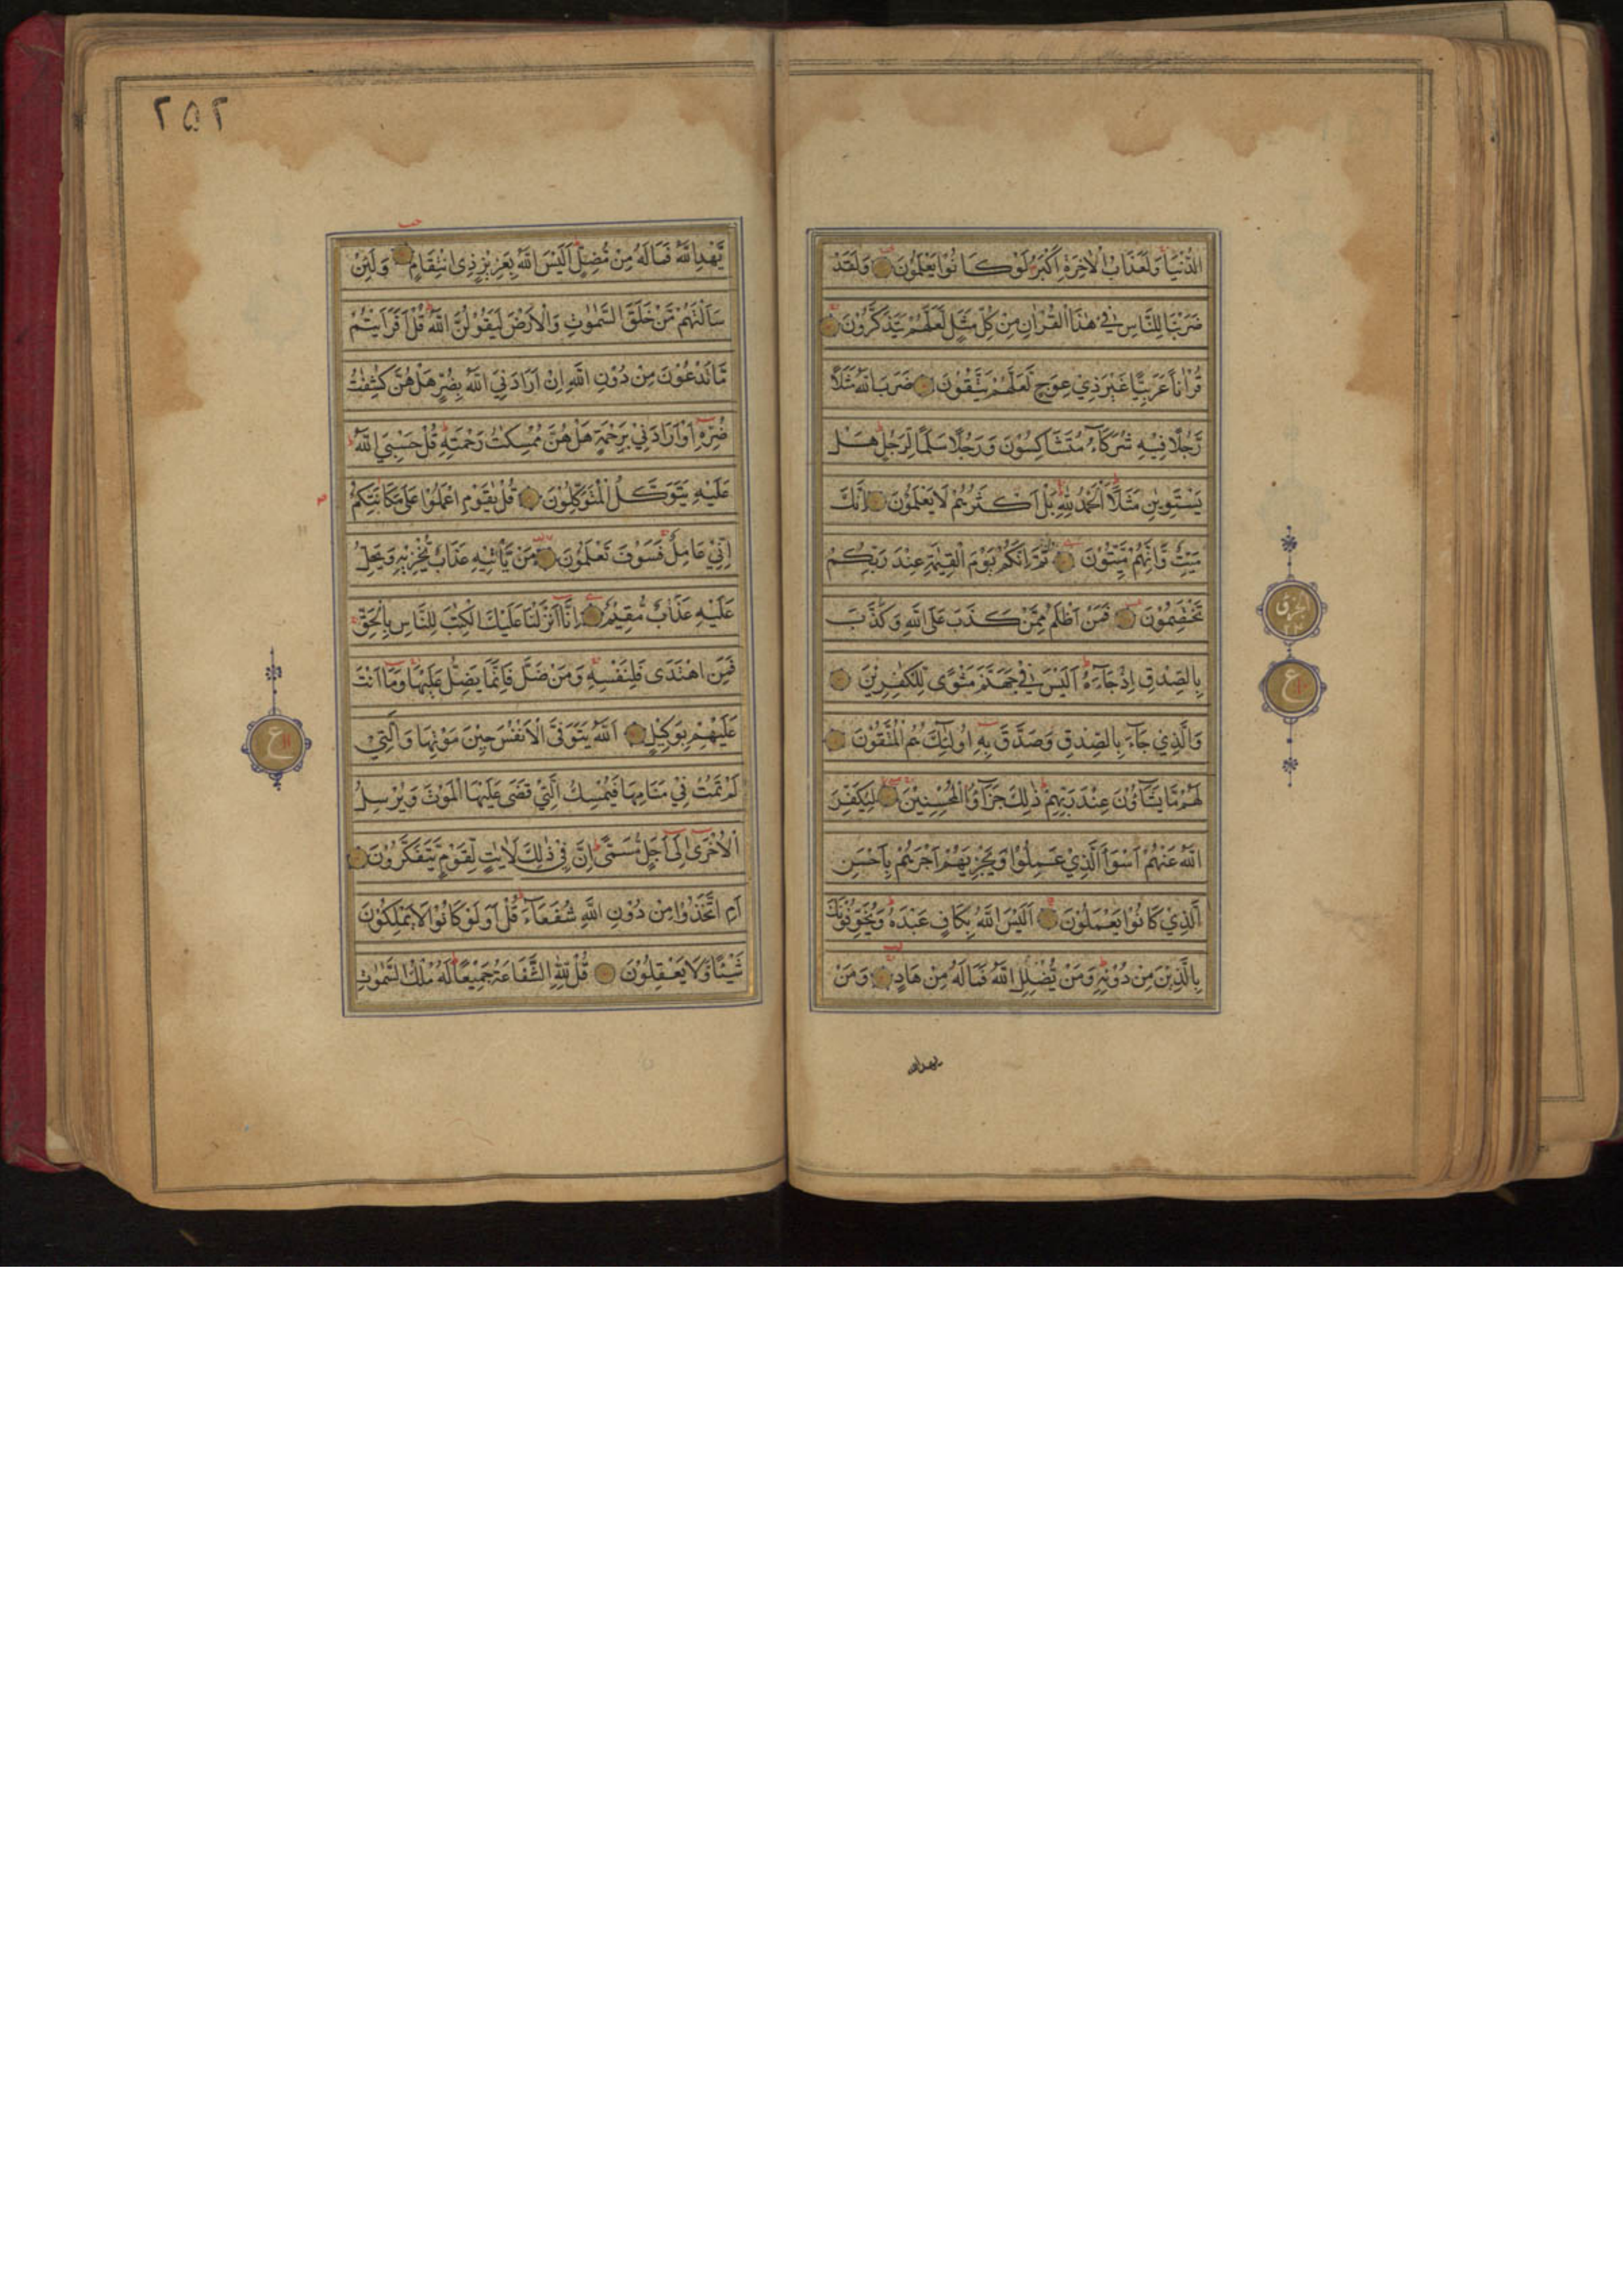 الدُّنْيَا وَلَعَذَابُ الْاٰخِرَةِ اَكْبَرُ لَوْ كَانُوْا يَعْلَمُوْنَ وَلَقَدْ
ضَرَبْنَا لِلنَّاسِ فِيْ هٰذَا الْقُرْاٰنِ مِنْ كُلِّ مَثَلٍ لَعَلَّهُمْ يَتَذَكَّرُوْنَ
قُرْاٰنًا عَرَبِيًّا غَيْرَ ذِيْ عِوَجٍ لَعَلَّهُمْ يَتَّقُوْنَ ضَرَبَ اللّٰهُ مَثَلًا
رَّجُلًا فِيْهِ شُرَكَآءُ مُتَشَاكِسُوْنَ وَرَجُلًا سَلَمًا لِّرَجُلٍ هَلْ
يَسْتَوِيٰنِ مَثَلًا اَلْحَمْدُ لِلّٰهِ بَلْ اَكْثَرُهُمْ لَا يَعْلَمُوْنَ اِنَّكَ
مَيِّتٌ وَّاِنَّهُمْ مَّيِّتُوْنَ ثُمَّ اِنَّكُمْ يَوْمَ الْقِيٰمَةِ عِنْدَ رَبِّكُمْ
تَخْتَصِمُوْنَ فَمَنْ اَظْلَمُ مِمَّنْ كَذَبَ عَلَى اللّٰهِ وَكَذَّبَ
بِالصِّدْقِ اِذْ جَآءَهُ اَلَيْسَ فِيْ جَهَنَّمَ مَثْوًى لِّلْكٰفِرِيْنَ
وَالَّذِيْ جَآءَ بِالصِّدْقِ وَصَدَّقَ بِهٖ اُولٰٓئِكَ هُمُ الْمُتَّقُوْنَ
لَهُمْ مَّا يَشَآؤُنَ عِنْدَ رَبِّهِمْ ذٰلِكَ جَزَآؤُا الْمُحْسِنِيْنَ لِيُكَفِّرَ
اللّٰهُ عَنْهُمْ اَسْوَاَ الَّذِيْ عَمِلُوْا وَيَجْزِيَهُمْ اَجْرَهُمْ بِاَحْسَنِ
الَّذِيْ كَانُوْا يَعْمَلُوْنَ اَلَيْسَ اللّٰهُ بِكَافٍ عَبْدَهٗ وَيُخَوِّفُوْنَكَ
بِالَّذِيْنَ مِنْ دُوْنِهٖ وَمَنْ يُّضْلِلِ اللّٰهُ فَمَا لَهٗ مِنْ هَادٍ وَمَنْ
يهدالله
ع
٢٥٢
يَّهْدِ اللّٰهُ فَمَا لَهٗ مِنْ مُّضِلٍّ اَلَيْسَ اللّٰهُ بِعَزِيْزٍ ذِي انْتِقَامٍ وَلَئِنْ
سَاَلْتَهُمْ مَّنْ خَلَقَ السَّمٰوٰتِ وَالْاَرْضَ لَيَقُوْلُنَّ اللّٰهُ قُلْ اَفَرَاَيْتُمْ
مَّا تَدْعُوْنَ مِنْ دُوْنِ اللّٰهِ اِنْ اَرَادَنِيَ اللّٰهُ بِضُرٍّ هَلْ هُنَّ كٰشِفٰتُ
ضُرِّهٖ اَوْ اَرَادَنِيْ بِرَحْمَةٍ هَلْ هُنَّ مُمْسِكٰتُ رَحْمَتِهٖ قُلْ حَسْبِيَ اللّٰهُ
عَلَيْهِ يَتَوَكَّلُ الْمُتَوَكِّلُوْنَ قُلْ يٰقَوْمِ اعْمَلُوْا عَلٰى مَكَانَتِكُمْ
اِنِّيْ عَامِلٌ فَسَوْفَ تَعْلَمُوْنَ مَنْ يَّاْتِيْهِ عَذَابٌ يُّخْزِيْهِ وَيَحِلُّ
عَلَيْهِ عَذَابٌ مُّقِيْمٌ اِنَّا اَنْزَلْنَا عَلَيْكَ الْكِتٰبَ لِلنَّاسِ بِالْحَقِّ
فَمَنِ اهْتَدٰى فَلِنَفْسِهٖ وَمَنْ ضَلَّ فَاِنَّمَا يَضِلُّ عَلَيْهَا وَمَا اَنْتَ
عَلَيْهِمْ بِوَكِيْلٍ اَللّٰهُ يَتَوَفَّى الْاَنْفُسَ حِيْنَ مَوْتِهَا وَالَّتِيْ
لَمْ تَمُتْ فِيْ مَنَامِهَا فَيُمْسِكُ الَّتِيْ قَضٰى عَلَيْهَا الْمَوْتَ وَيُرْسِلُ
الْاُخْرٰى اِلٰى اَجَلٍ مُّسَمًّى اِنَّ فِيْ ذٰلِكَ لَاٰيٰتٍ لِّقَوْمٍ يَّتَفَكَّرُوْنَ
اَمِ اتَّخَذُوْا مِنْ دُوْنِ اللّٰهِ شُفَعَآءَ قُلْ اَوَلَوْ كَانُوْا لَا يَمْلِكُوْنَ
شَيْئًا وَّلَا يَعْقِلُوْنَ قُلْ لِّلّٰهِ الشَّفَاعَةُ جَمِيْعًا لَهٗ مُلْكُ السَّمٰوٰتِ
ع